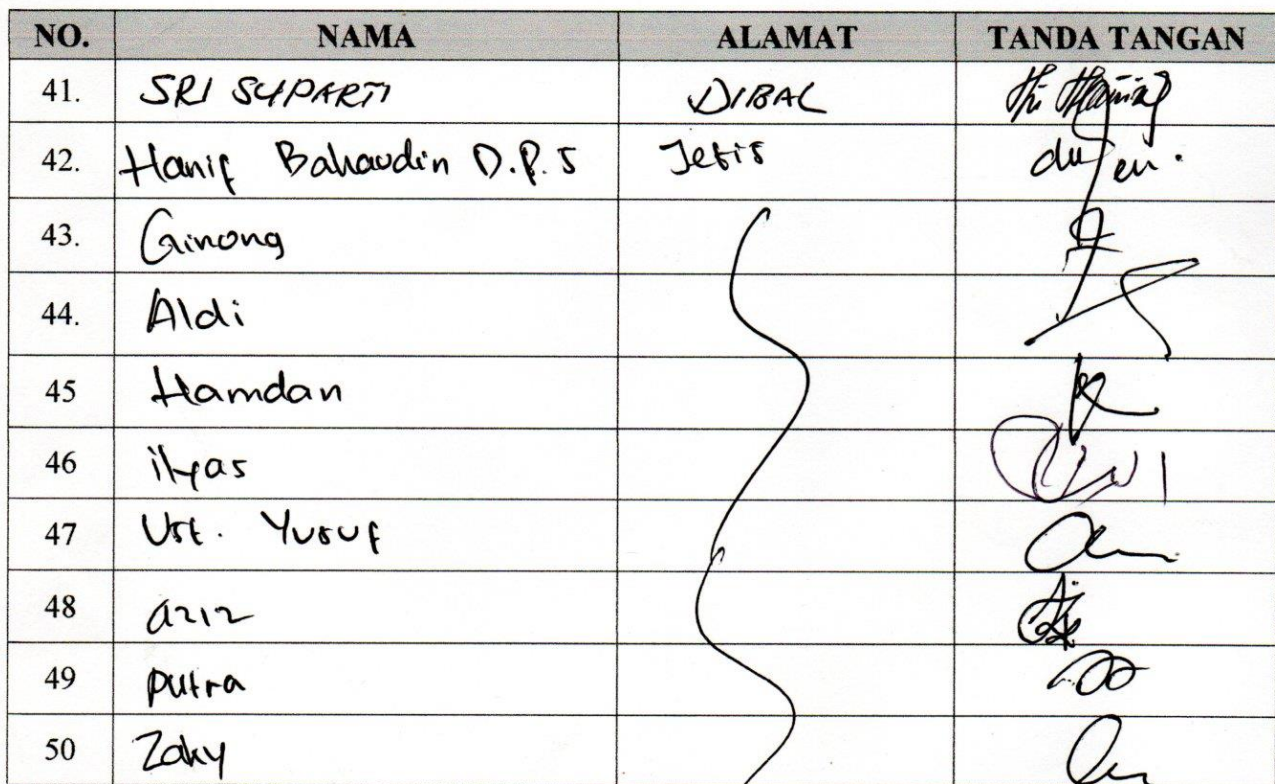 NO. NAMA ALAMAT TANDA TANGAN
41. SRI SUPARTI DIBAL
42. Hanif Bahaudin D.P.S Jetis
43. Ginong
44. Aldi
45 Hamdan
46 ilyas
47 Ust. Yusuf
48 aziz
49 putra
50 Zaky